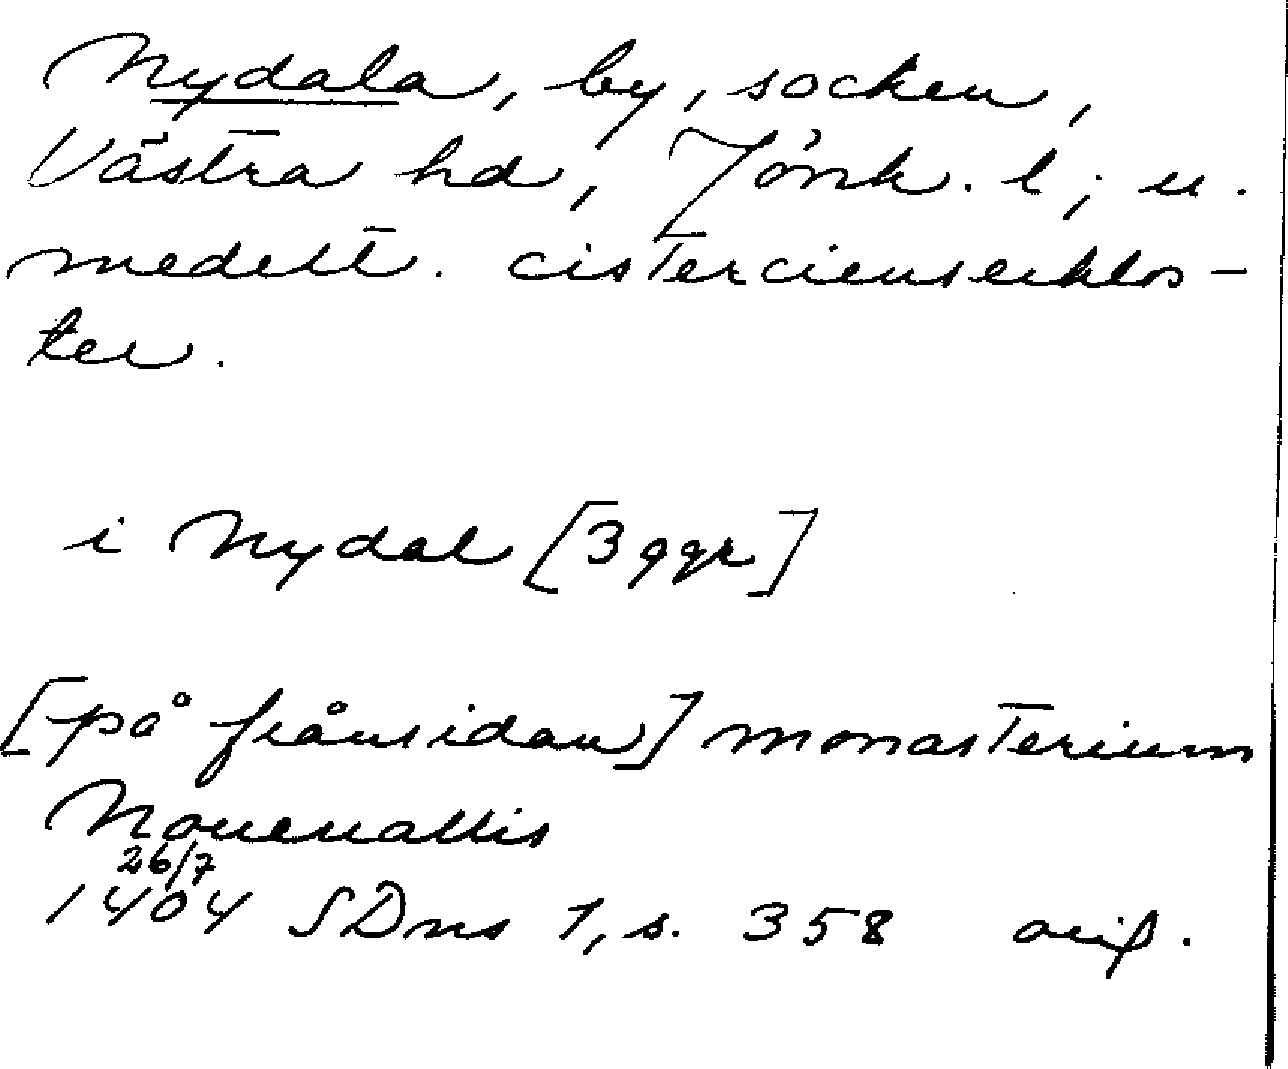 Nydala, by, socken,
Västra hd, Jönk. l; u.
medelt. cistercienserklos-
ter.
i Nydal [3 ggr]
[på frånsidan] monasterium
Nouenallis
26/7
1404 SDns 1, s. 358 orig.